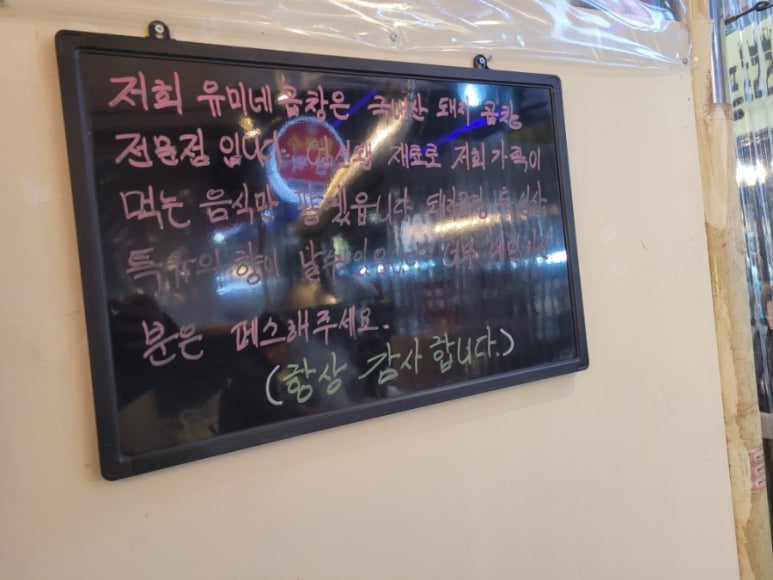 저희 유미네곱창은 국내산 돼지 곱창
전문점 입니다. 재료로 저희가족이
먹는 음식만 팔겠읍니다. 돼지곱창 특성상
특유의 향이 날수있 너무 예민하신
분은 페스해주세요.
(항상 감사합니다.)